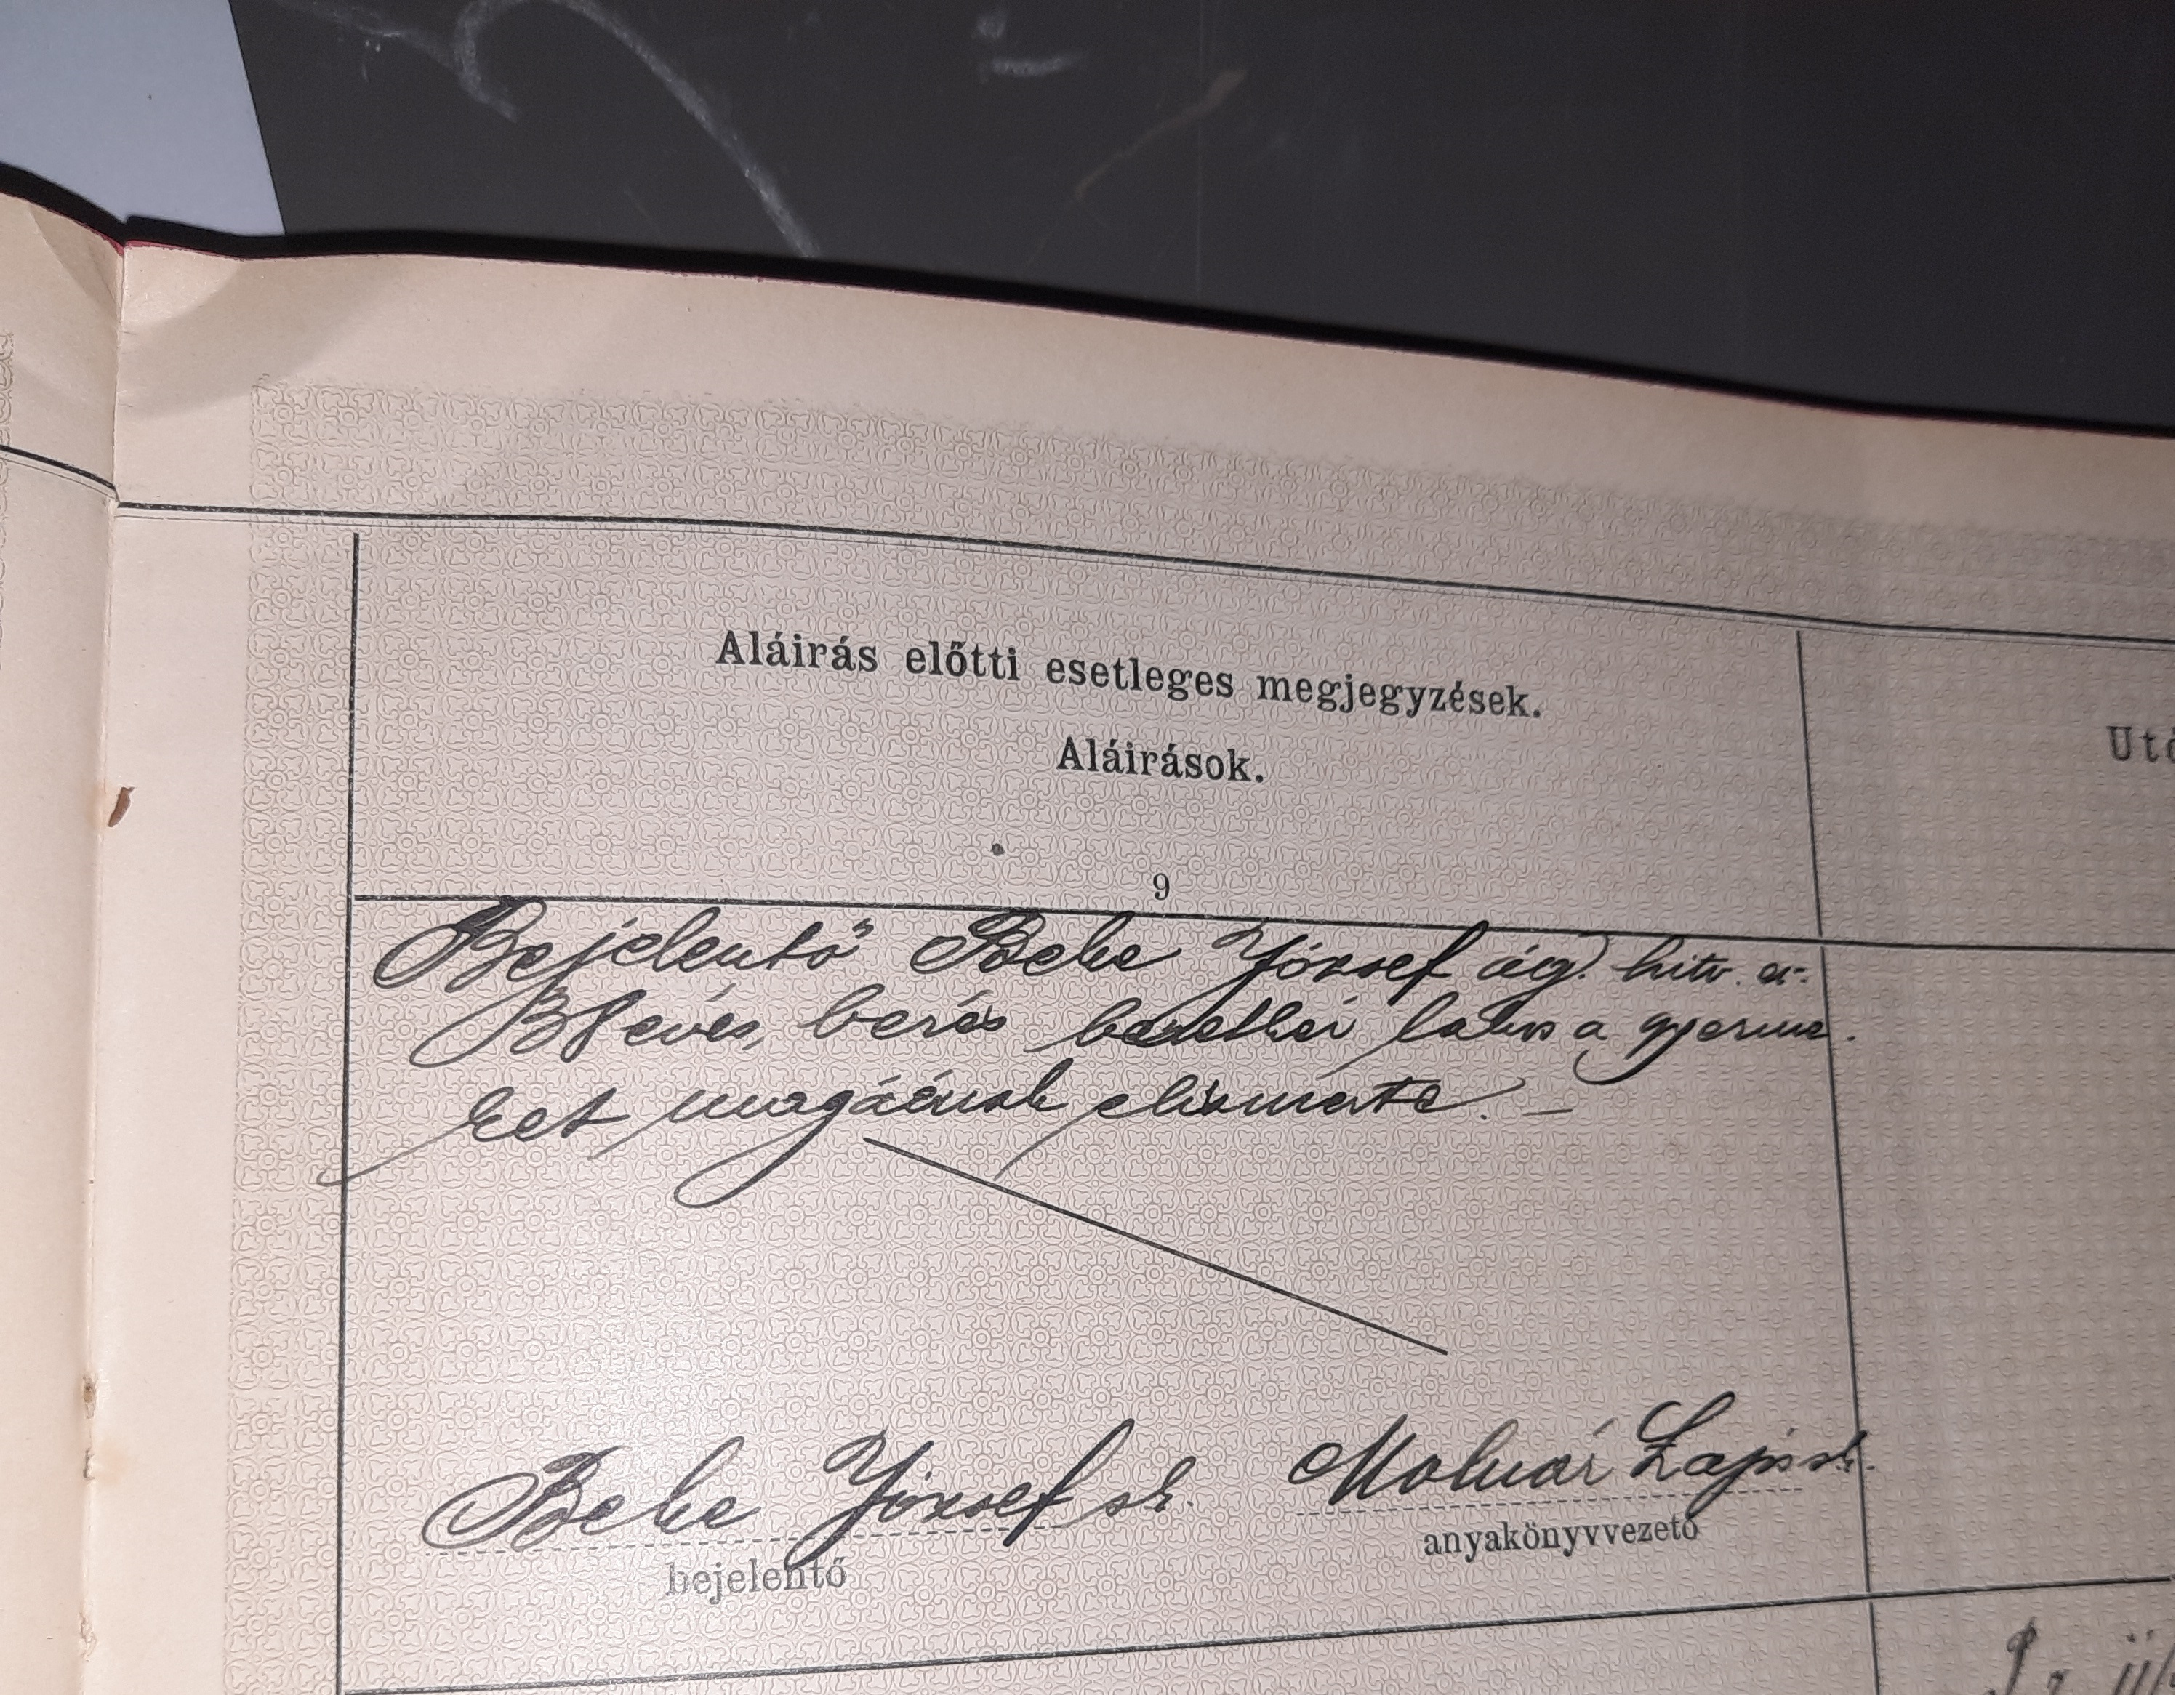 Aláirás előtti esetleges megjegyzések.
Aláirások.
9
Bejelentő Beke József ág. hitv. ev.
béres lakos a gyerme
ket magáénak elismerte. —
Beke József sk.
bejelentő
Molnár Lajos sk.
anyakönyvvezető
Utó